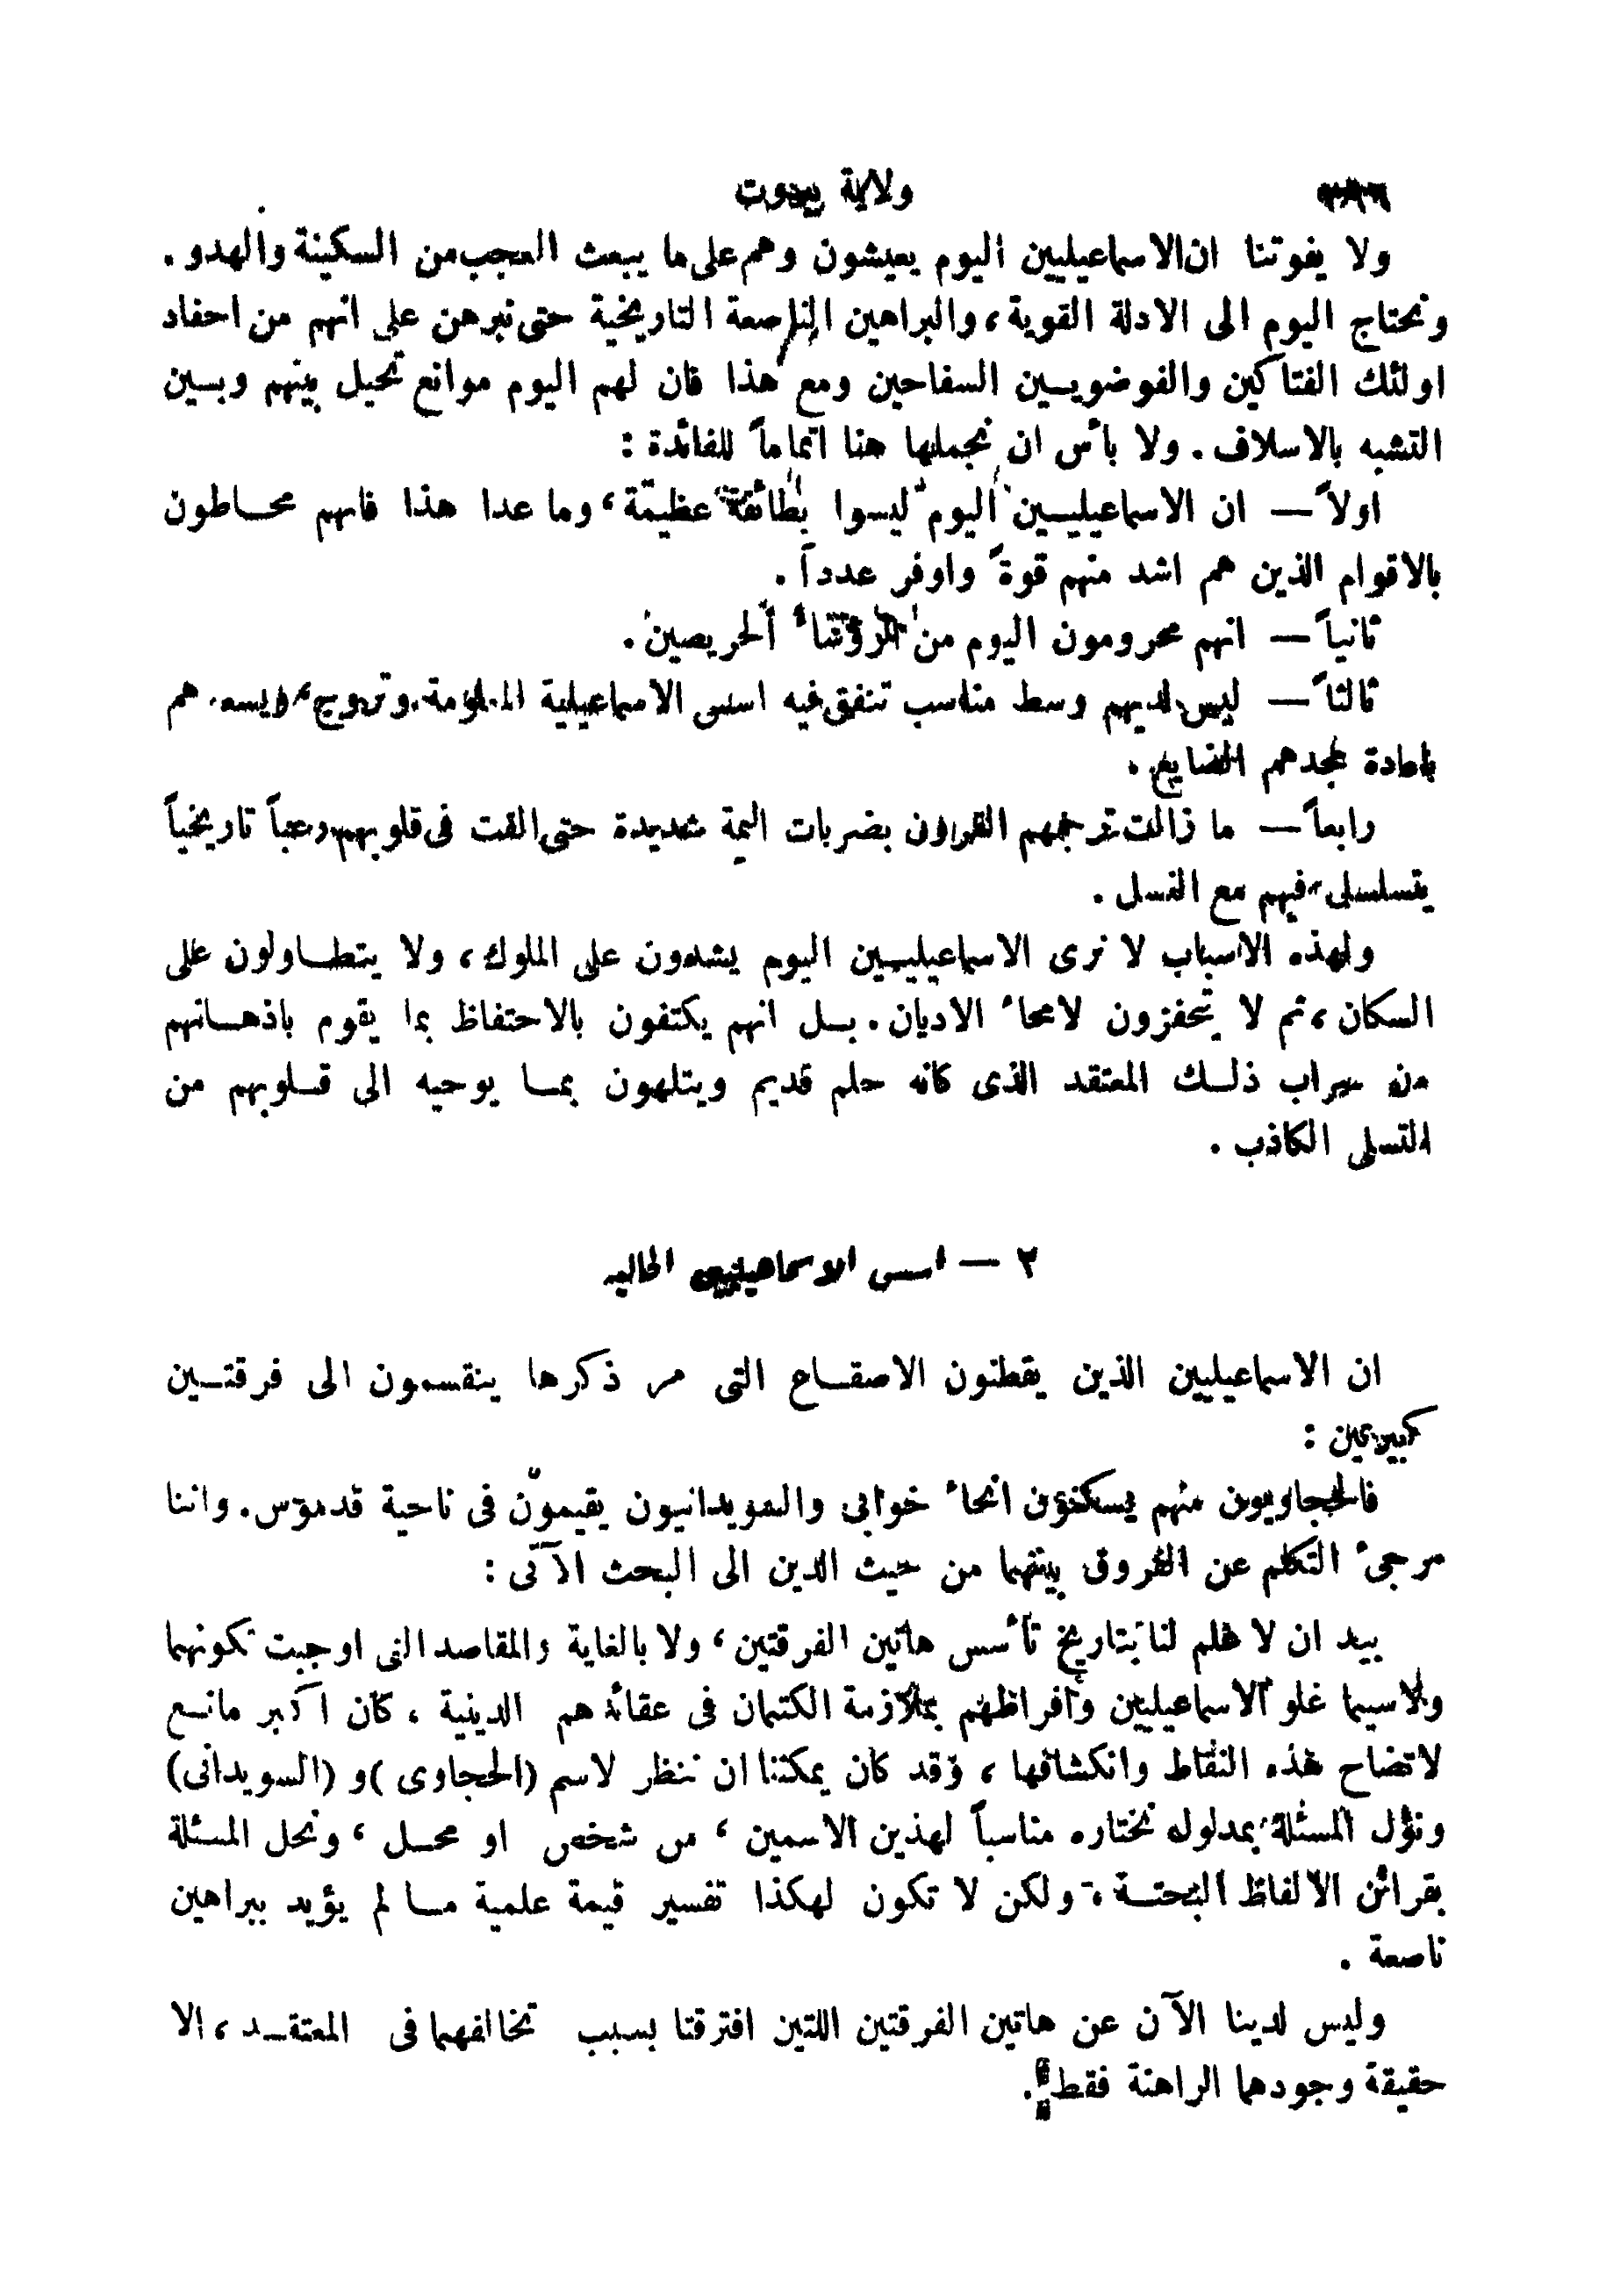 ولاية بيروت
ولا يفوتنا ان الاسماعيليين اليوم يعيشون وهم على ما يبعث العجب من السكينة والهدو .
ونحتاج اليوم الى الادلة القوية ، والبراهين الناصعة التاريخية حتى نبرهن على انهم من احفاد
اولئك الفتاكين والفوضويين السفاحين ومع هذا فان لهم اليوم موانع تحيل بينهم وبين
التشبه بالاسلاف . ولا بأس ان نجملها هنا اتماماً للفائدة :
اولاً — ان الاسماعيليين اليوم ليسوا بطائفة عظيمة ، وما عدا هذا فانهم محاطون
بالاقوام الذين هم اشد منهم قوةً واوفر عدداً .
ثانياً — انهم محرومون اليوم من الرؤساء الحريصين .
ثالثاً — ليس لديهم وسط مناسب تنفق فيه اسس الاسماعيلية وتروج هم
باعادة مجدهم الضايع .
رابعاً — ما زالت ترجمهم القرون بضربات اليمة شديدة حتى القت فى قلوبهم رعباً تاريخياً
يتسلسل فيهم مع النسل .
ولهذه الاسباب لا نرى الاسماعيليين اليوم يشدون على الملوك ، ولا يتطاولون على
السكان ، ثم لا يتحفزون لامحاء الاديان . بل انهم يكتفون بالاحتفاظ بما يقوم باذهانهم
من سراب ذلك المعتقد الذى كانه حلم قديم ويتلهون بما يوحيه الى قلوبهم من
التسلى الكاذب .
٢ — اسس الاسماعيليين الحاليه
ان الاسماعيليين الذين يقطنون الاصقاع التى مر ذكرها ينقسمون الى فرقتين
كبيرتين :
فالحجاويون منهم يسكنون انحاء خوابى والسويدانيون يقيمون فى ناحية قدموس . واننا
مرجئ التكلم عن الفروق بينهما من حيث الدين الى البحث الآتى :
بيد ان لا علم لنا بتاريخ تأسس هاتين الفرقتين ، ولا بالغاية والمقاصد التى اوجبت تكونهما
ولاسيما غلو الاسماعيليين وأفراطهم بملازمة الكتمان فى عقائدهم الدينية ، كان اكبر مانع
لاتضاح هذه النقاط وانكشافها ، وقد كان يمكننا ان ننظر لاسم (الحجاوى) و (السويدانى)
ونؤل المسئلة بمدلول نختاره مناسباً لهذين الاسمين ، من شخص او محل ، ونحل المسئلة
بقرائن الالفاظ البحتة ، ولكن لا تكون لهكذا تفسير قيمة علمية ما لم يؤيد ببراهين
ناصعة .
وليس لدينا الآن عن هاتين الفرقتين اللتين افترقتا بسبب تخالفهما فى المعتقد ، الا
حقيقة وجودهما الراهنة فقط .